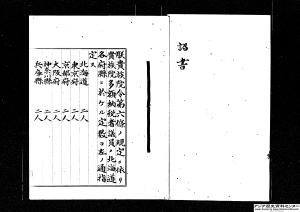 詔書
朕貴族院令第六條ノ規定ニ依リ
貴族院多額納税者議員ノ北海道
各府縣ニ於ケル定數ヲ左ノ通指
定ス
北海道 二人
東京府 二人
京都府 二人
大阪府 二人
神奈川縣 二人
兵庫縣 二人